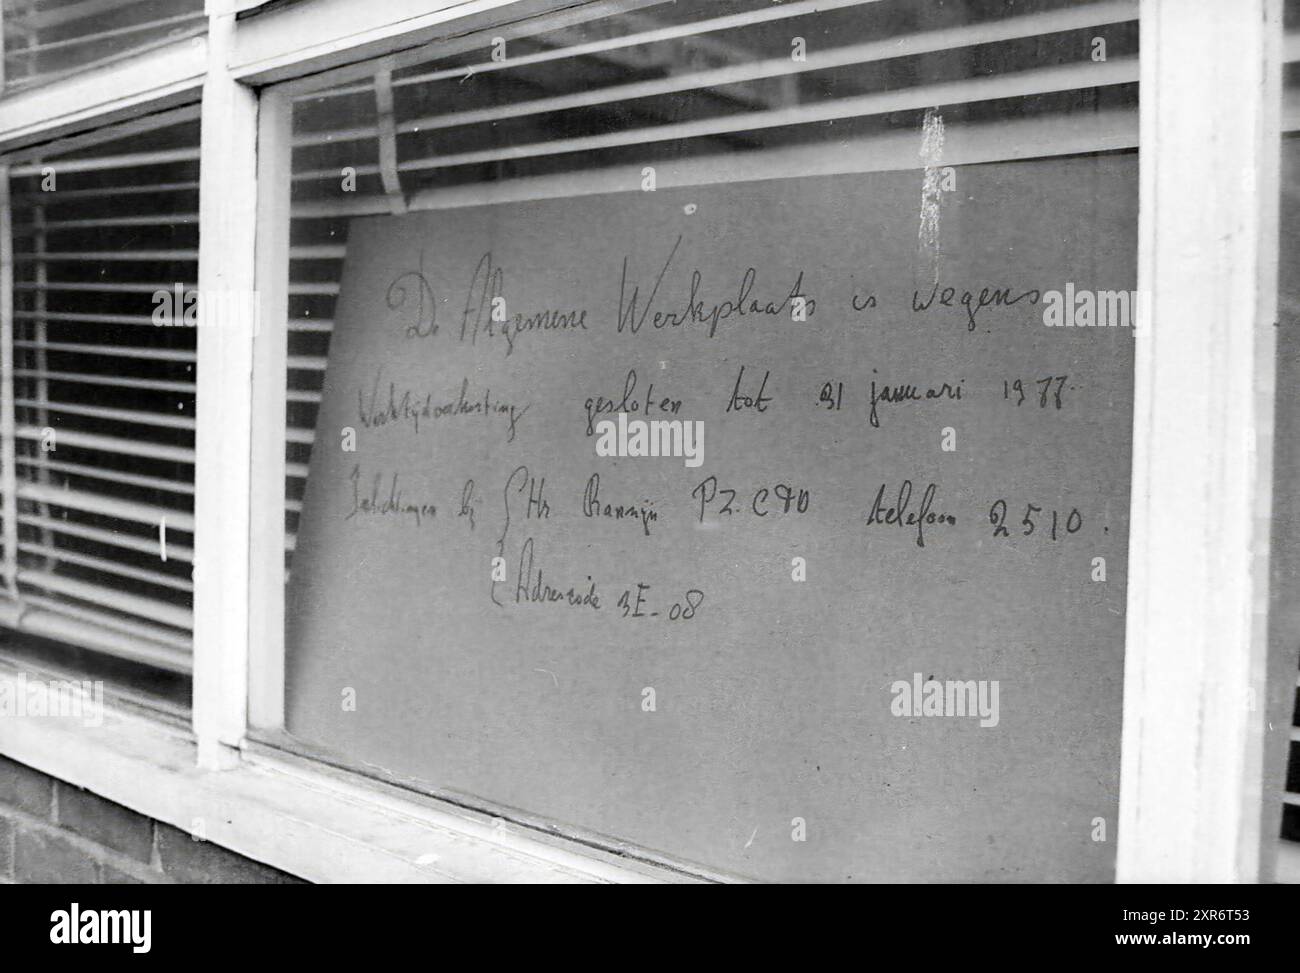 De Algemene Werkplaats is wegens
Werktijdverkorting gesloten tot 31 januari 1977.
Inlichtingen bij Hr PZ. telefoon 2510.
Adrescode 3E-08
alamy
a
Image ID: 2XR6T53
www.alamy.com